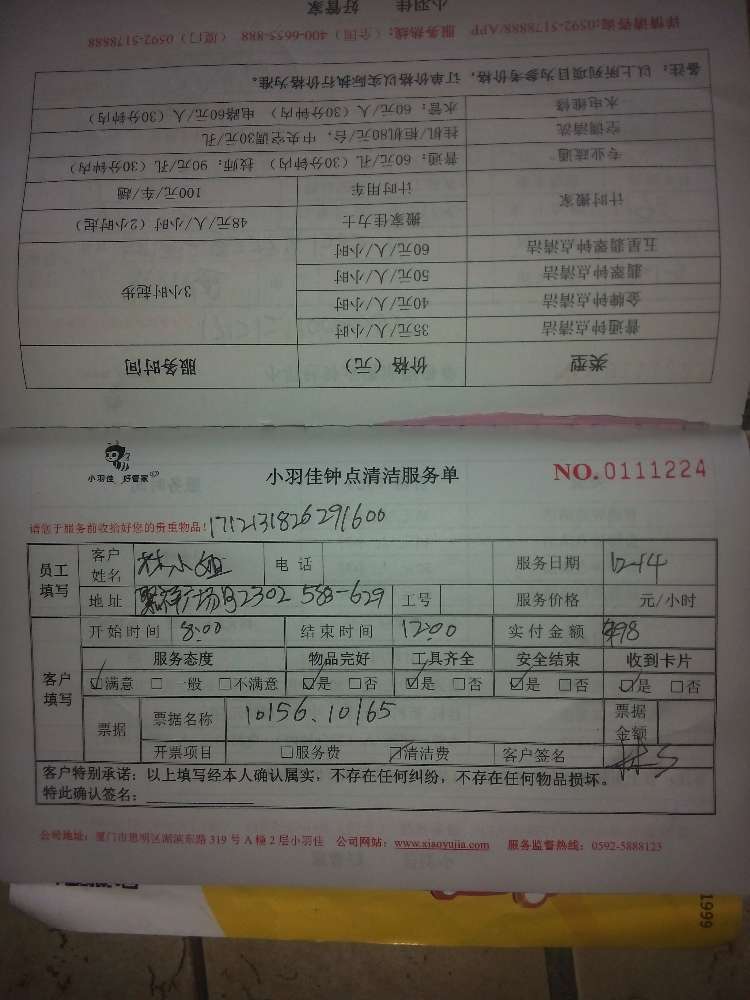 小羽佳 好管家
详情请咨询:0592-5178888/APP 服务热线:(全国)400-6655-888 (厦门)0592-5178888
备注:以上所列项目为参考价格,订单价格以实际执行价格为准。
水电维修 水管:60元/人(30分钟内) 电路60元/人(30分钟内)
空调清洗 挂机/柜机80元/台,中央空调30元/孔
专业疏通 普通:60元/孔(30分钟内) 技师:90元/孔(30分钟内)
计时搬家 计时用车 100元/车/趟
搬家佳力士 48元/人/小时(2小时起)
五星翡翠钟点清洁 60元/人/小时
翡翠钟点清洁 50元/人/小时 3小时起步
金牌钟点清洁 40元/人/小时
普通钟点清洁 35元/人/小时
类型 价格(元) 服务时间
小羽佳 好管家
小羽佳钟点清洁服务单
NO.0111224
请您于服务前收给好您的贵重物品! 1712131826291600
员工填写 客户姓名 林小姐 电话 服务日期 12-14
地址 广场B2302 588-629 工号 服务价格 元/小时
客户填写 开始时间 8:00 结束时间 12:00 实付金额 498
服务态度 物品完好 工具齐全 安全结束 收到卡片
☑满意 □一般 □不满意 ☑是 □否 ☑是 □否 ☑是 □否 ☑是 □否
票据 票据名称 10156、10165 票据金额
开票项目 □服务费 ☑清洁费 客户签名
客户特别承诺:以上填写经本人确认属实,不存在任何纠纷,不存在任何物品损坏。
特此确认签名:
公司地址:厦门市思明区湖滨东路319号A幢2层小羽佳 公司网站:www.xiaoyujia.com 服务监督热线:0592-5888123
1999